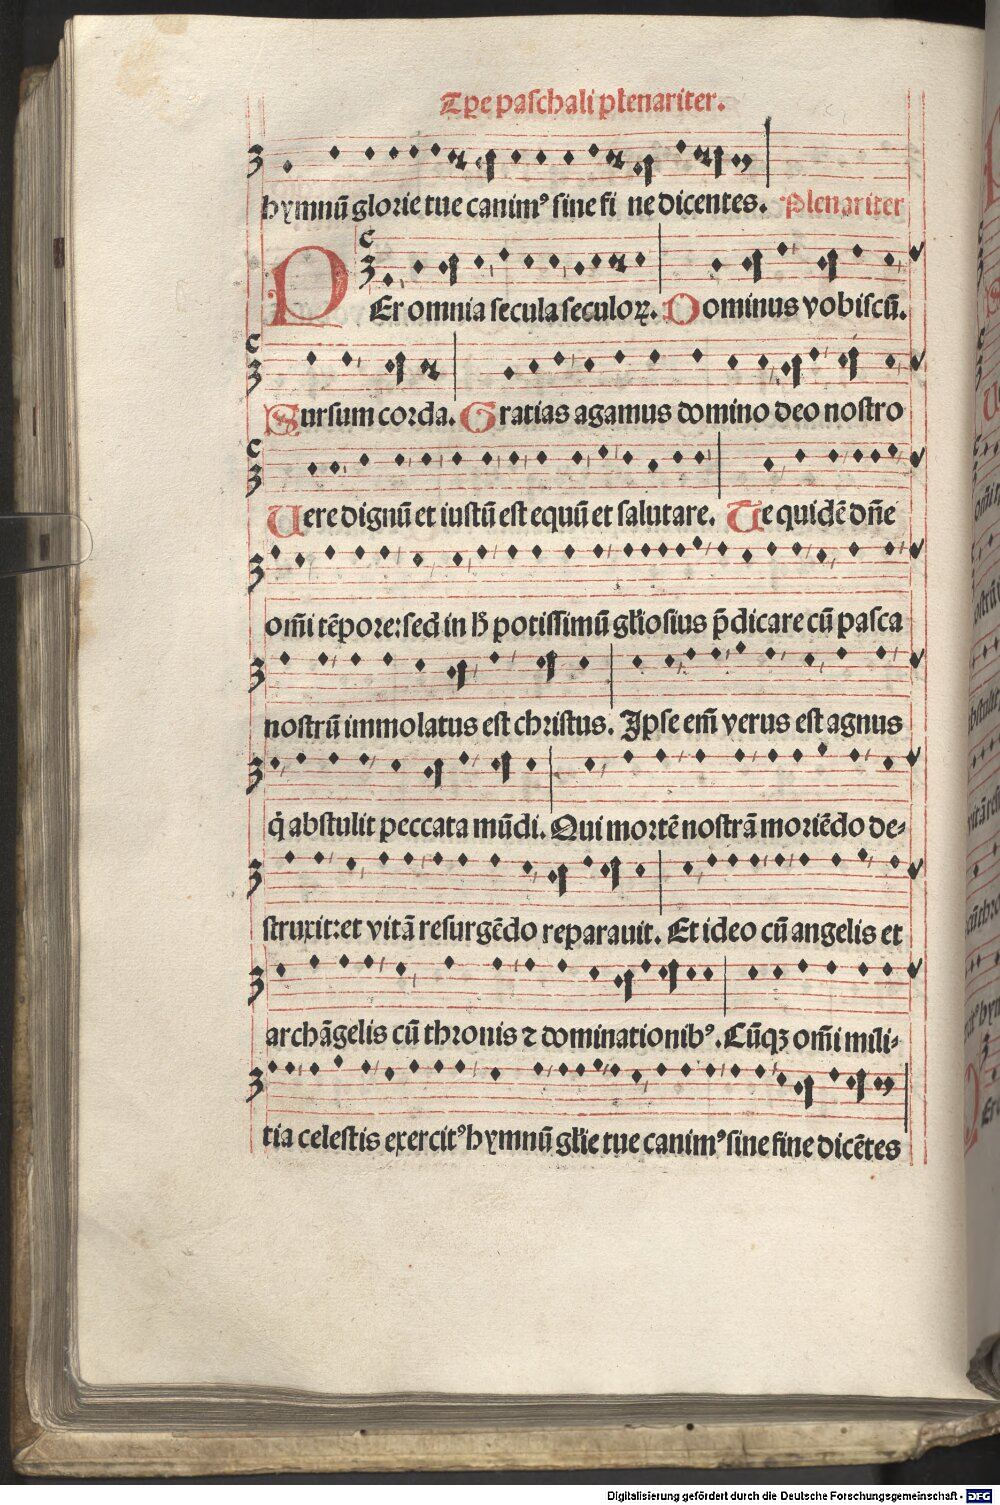 Tpe paschali plenariter.
hymnū glorie tue canimꝰ sine fi ne dicentes. Plenariter
PEr omnia secula seculoꝝ. Dominus vobiscū.
Sursum corda. Gratias agamus domino deo nostro
Uere dignū et iustū est equū et salutare. Te quidē dn̄e
om̄i tēpore: sed in h̄ potissimū gl̄iosius p̄dicare cū pasca
nostrū immolatus est christus. Ipse em̄ verus est agnus
q̇ abstulit peccata mūdi. Qui mortē nostrā moriēdo de-
struxit: et vitā resurgēdo reparauit. Et ideo cū angelis et
archāgelis cū thronis ⁊ dominationibꝰ. Cūqꝫ om̄i mili-
tia celestis exercitꝰ hymnū gl̄ie tue canimꝰ sine fine dicētes
Digitalisierung gefördert durch die Deutsche Forschungsgemeinschaft - DFG